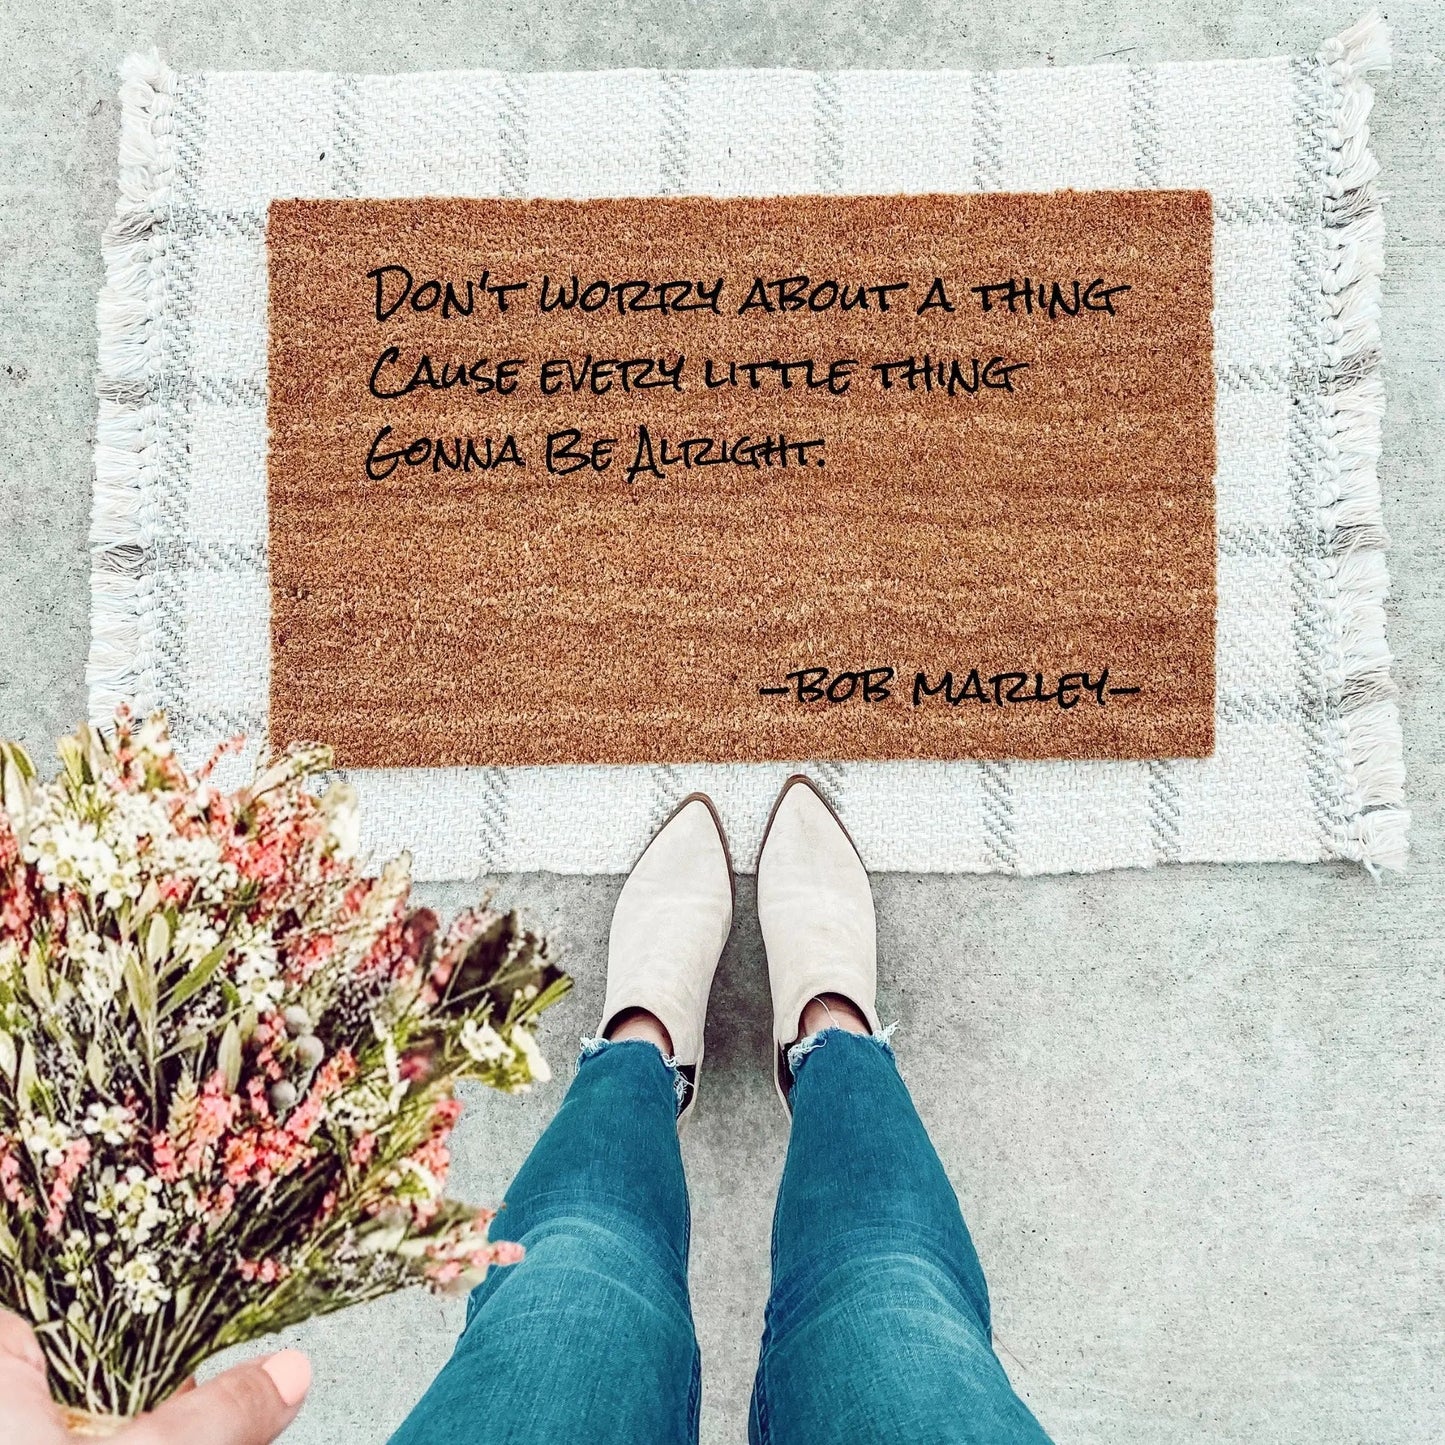 Don't worry about a thing
Cause every little thing
Gonna Be Alright.
-Bob Marley-